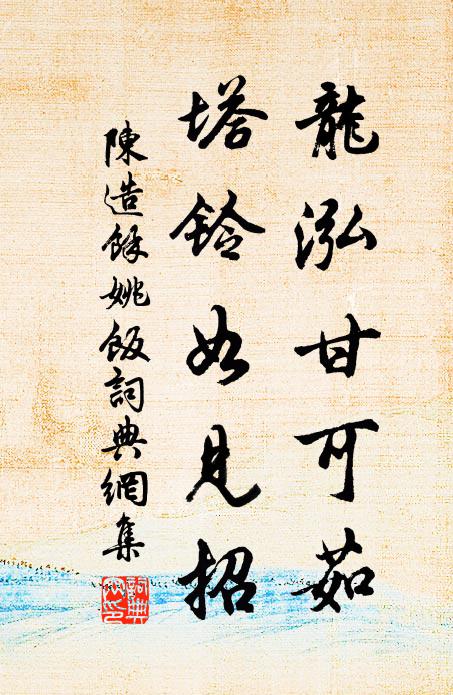 龍泓甘可茹
塔鈴如見招
陳造餘姚飯詞典網集